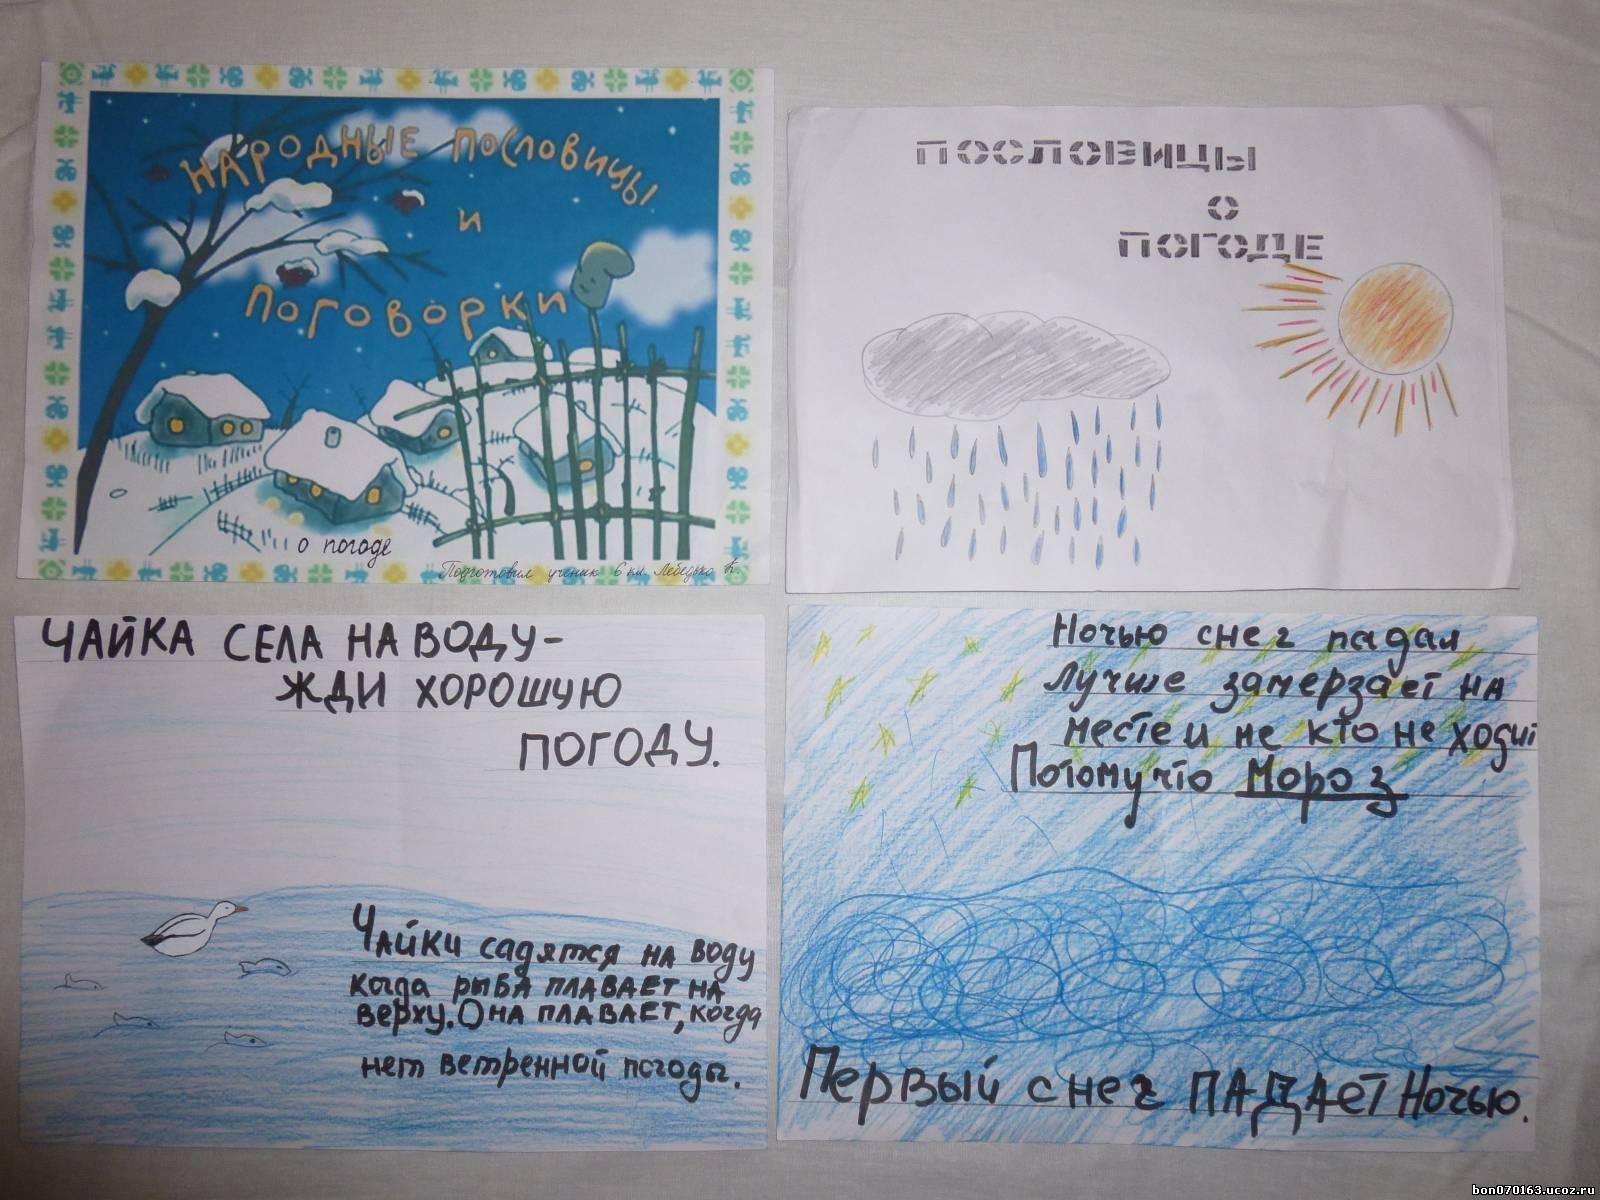 НАРОДНЫЕ ПОСЛОВИЦЫ
И
ПОГОВОРКИ
о погоде
Подготовил ученик 6 кл. Лебедько К.
ПОСЛОВИЦЫ
О
ПОГОДЕ
ЧАЙКА СЕЛА НА ВОДУ-
ЖДИ ХОРОШУЮ
ПОГОДУ.
ЧАЙКИ САДЯТСЯ НА ВОДУ
КОГДА РЫБА ПЛАВАЕТ НА
ВЕРХУ. ОНА ПЛАВАЕТ, КОГДА
НЕТ ВЕТРЕННОЙ ПОГОДЫ.
Ночью снег падал
Лучше замерзает на
месте и не кто не ходит
Потому что Мороз
Первый снег ПАДАЕТ Ночью.
bon070163.ucoz.ru